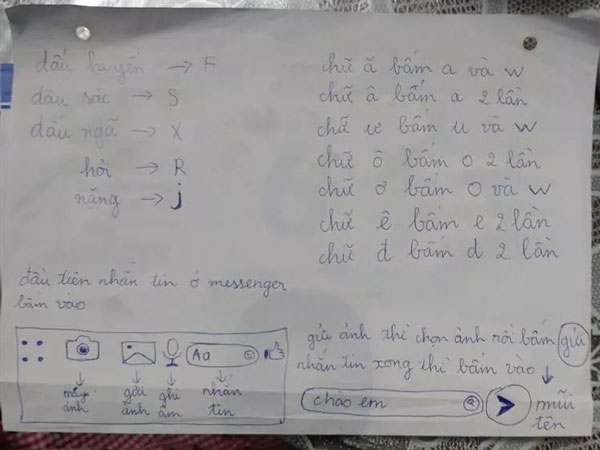 dấu huyền → F
dấu sắc → S
dấu ngã → X
hỏi → R
nặng → j
chữ ă bấm a và w
chữ â bấm a 2 lần
chữ ư bấm u và w
chữ ô bấm o 2 lần
chữ ơ bấm O và w
chữ ê bấm e 2 lần
chữ đ bấm d 2 lần
đầu tiên nhắn tin ở messenger
bấm vào
Aa
mấy ảnh
gửi ảnh
ghi âm
nhắn tin
gửi ảnh thì chọn ảnh rồi bấm gửi
nhắn tin xong thì bấm vào
chào em
mũi tên